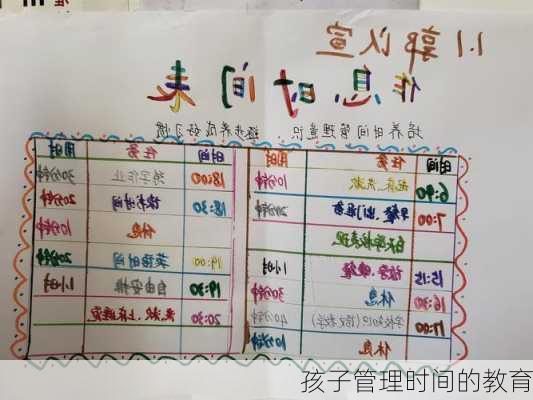 1.1 郭以宣
作息时间表
培养时间管理意识 逐步养成好习惯
时间 任务 用时 时间 任务 用时
6:40 起床洗漱 10分钟 18:00 作业 30分钟
7:00 早餐、出门准备 20分钟 18:30 时间 20分钟
白天学校表现 休息 10分钟
15:15 晚餐 1小时 19:00 英语时间
16:30 休息 30分钟 19:30 自由安排 1小时
17:00 学校知识(语文数学) 40分钟 20:30 洗漱、上床睡觉
休息 10分钟
孩子管理时间的教育